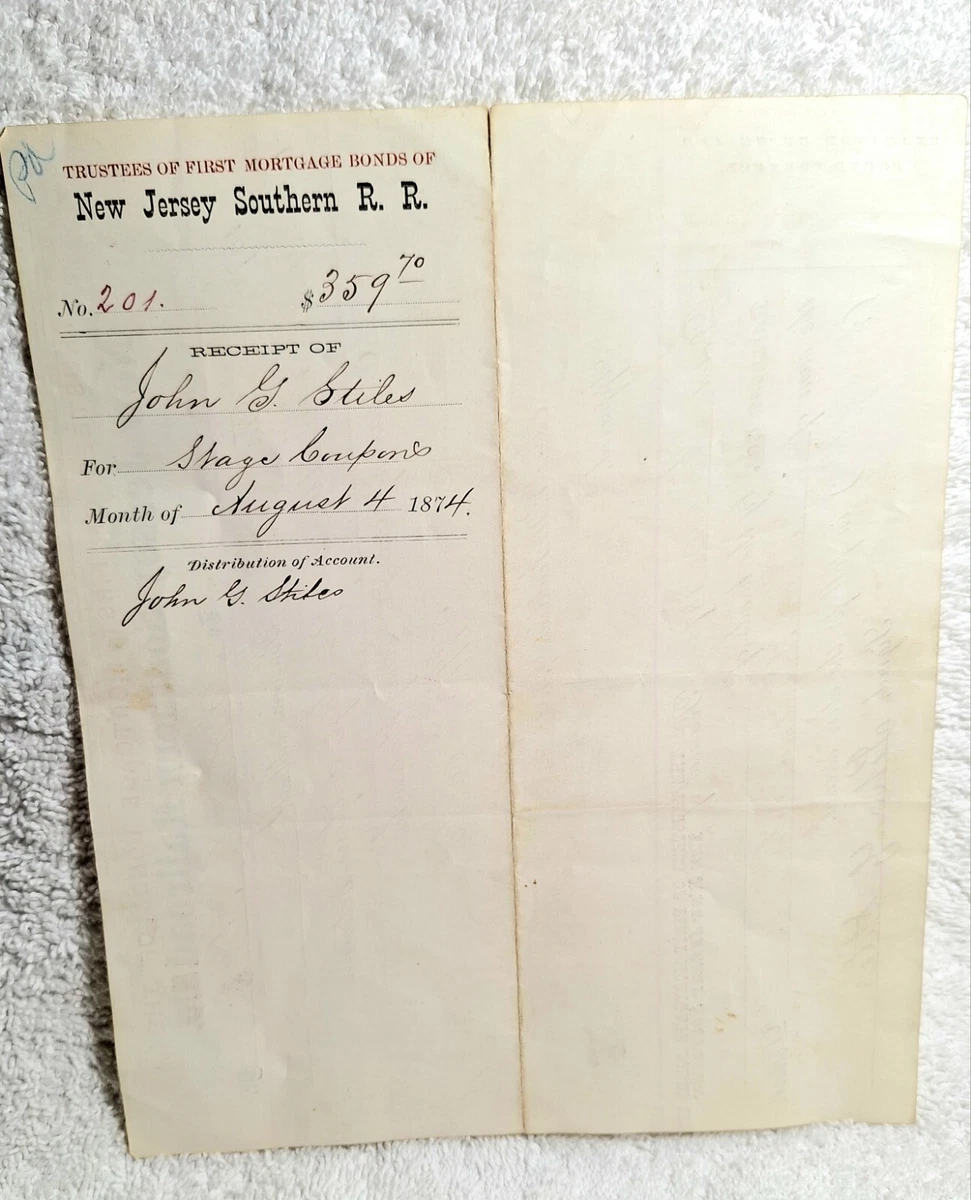 Pd
TRUSTEES OF FIRST MORTGAGE BONDS OF
New Jersey Southern R. R.
No. 201. $359 70
RECEIPT OF
John G. Stiles
For Stage Coupons
Month of August 4 1874.
Distribution of Account.
John G. Stiles